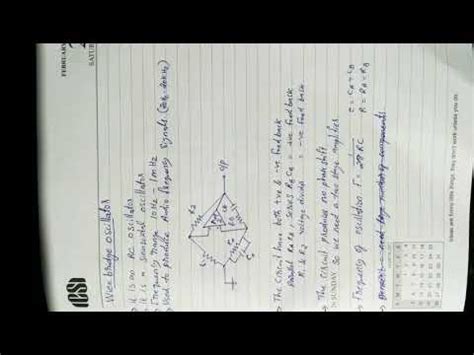 FEBRUARY
SATU
Wien bridge oscillator
→ it is an RC oscillator
→ it is a sinusoidal oscillator
→ Frequency range 10Hz - 1MHz
→ Used to produce Audio frequency signals (20Hz - 20KHz)
R2
o/p
→ The circuit have both +ve & -ve feed back
parallel RA CA, series RB CB = +ve feed back
R1 & R2 voltage divider = -ve feed back
→ The circuit produce no phase shift
SUNDAY So we need a two stage amplifier
→ Frequency of oscillation F = 1/2πRC
C = CA = CB
R = RA = RB
Ideas are funny little things, they don't work unless you do.